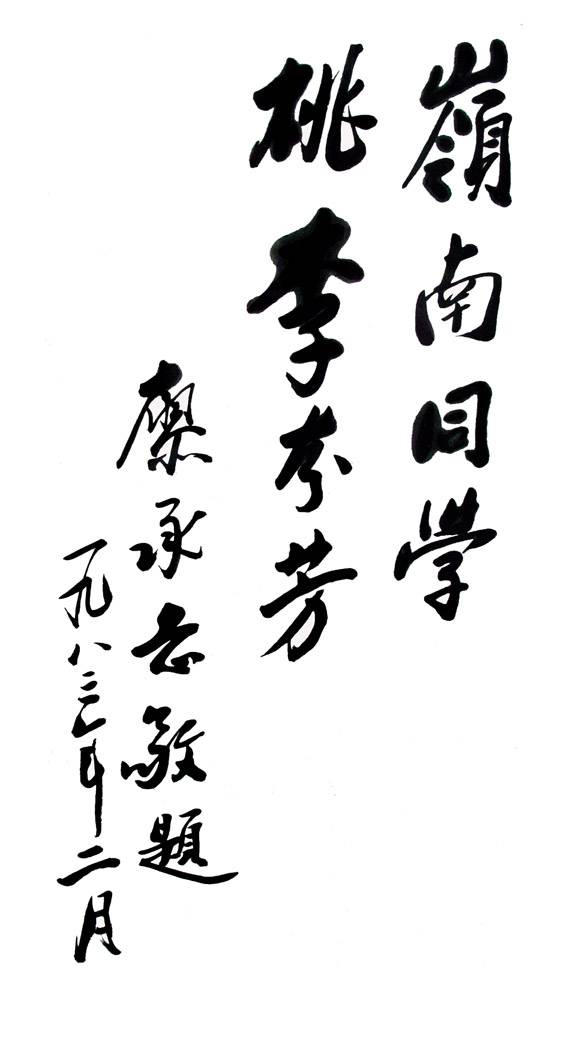 嶺南同学
桃李芬芳
廖承志敬題
一九八三年二月